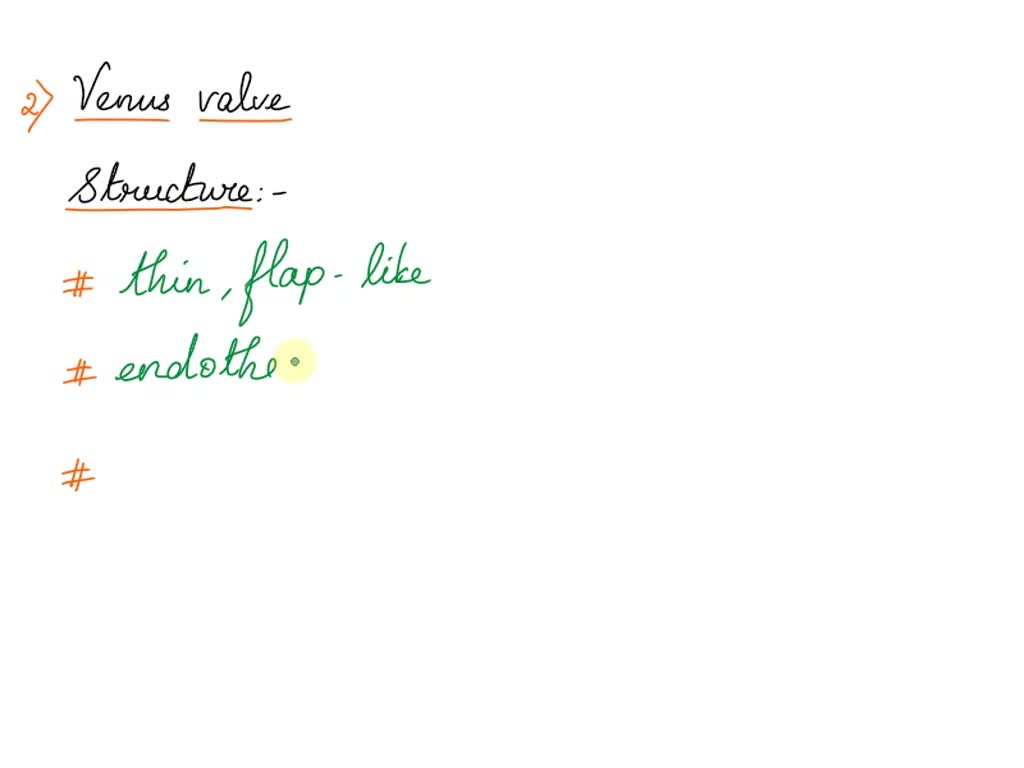 2) Venus valve
Structure:-
# thin, flap-like
# endothe
#